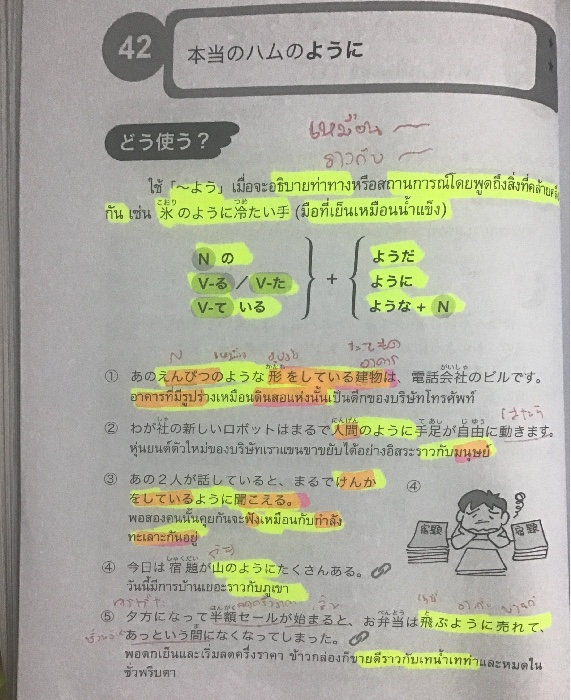 42
本当のハムのように
どう使う？
เหมือน ~
ราวกับ ~
ใช้ 「～よう」 เมื่อจะอธิบายท่าทางหรือสถานการณ์โดยพูดถึงสิ่งที่คล้าย
กัน เช่น 氷のように冷たい手 (มือที่เย็นเหมือนน้ำแข็ง)
N の
V-る / V-た
V-て いる
+
ようだ
ように
ような + N
① あのえんぴつのような形をしている建物は、電話会社のビルです。
อาคารที่มีรูปร่างเหมือนดินสอแห่งนั้นเป็นตึกของบริษัทโทรศัพท์
② わが社の新しいロボットはまるで人間のように手足が自由に動きます。
หุ่นยนต์ตัวใหม่ของบริษัทเราแขนขาขยับได้อย่างอิสระราวกับมนุษย์
③ あの２人が話していると、まるでけんか
をしているように聞こえる。
พอสองคนนั้นคุยกันจะฟังเหมือนกับกำลัง
ทะเลาะกันอยู่
④
宿題
宿題
④ 今日は宿題が山のようにたくさんある。
วันนี้มีการบ้านเยอะราวกับภูเขา
⑤ 夕方になって半額セールが始まると、お弁当は飛ぶように売れて、
あっという間になくなってしまった。
พอตกเย็นและเริ่มลดครึ่งราคา ข้าวกล่องก็ขายดีราวกับเทน้ำเทท่าและหมดใน
ชั่วพริบตา